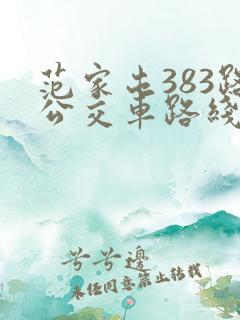 范家屯383路
公交车路线
兮兮边
未经同意禁止转载